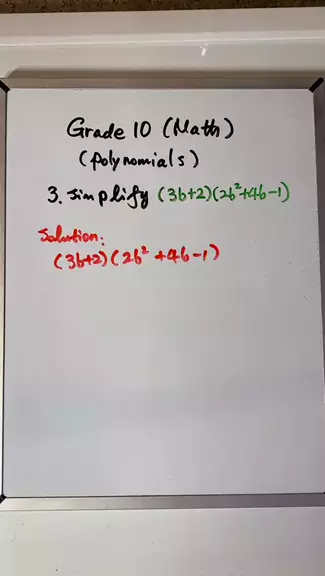 Grade 10 (Math)
(polynomials)
3. Simplify (3b+2)(2b²+4b-1)
Solution:
(3b+2)(2b²+4b-1)